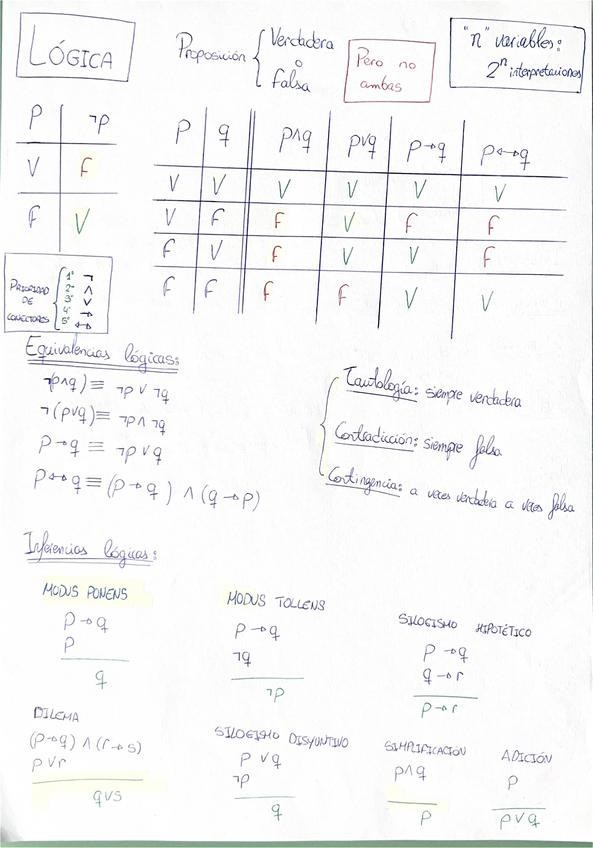 LÓGICA
Proposición { Verdadera
o
falsa
Pero no
ambas
"n" variables:
2ⁿ interpretaciones
p ¬p
V F
F V
p q p∧q p∨q p→q p↔q
V V V V V V
V F F V F F
F V F V V F
F F F F V V
PRIORIDAD
DE
CONECTORES
1º ¬
2º ∧
3º ∨
4º →
5º ↔
Equivalencias lógicas:
¬(p∧q) ≡ ¬p ∨ ¬q
¬(p∨q) ≡ ¬p ∧ ¬q
p→q ≡ ¬p ∨ q
p↔q ≡ (p→q) ∧ (q→p)
Tautología: siempre verdadera
Contradicción: siempre falsa
Contingencia: a veces verdadera a veces falsa
Inferencias lógicas:
MODUS PONENS
p→q
p
q
MODUS TOLLENS
p→q
¬q
¬p
SILOGISMO HIPOTÉTICO
p→q
q→r
p→r
DILEMA
(p→q) ∧ (r→s)
p∨r
q∨s
SILOGISMO DISYUNTIVO
p∨q
¬p
q
SIMPLIFICACIÓN
p∧q
p
ADICIÓN
p
p∨q